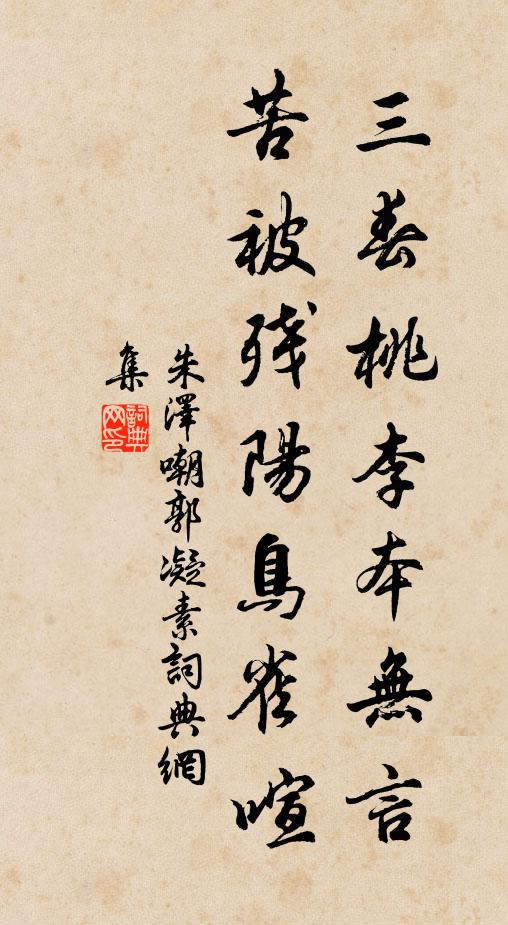 三春桃李本無言
苦被残陽鳥雀喧
朱澤嘲郭凝素詞典網
集
詞典
网印